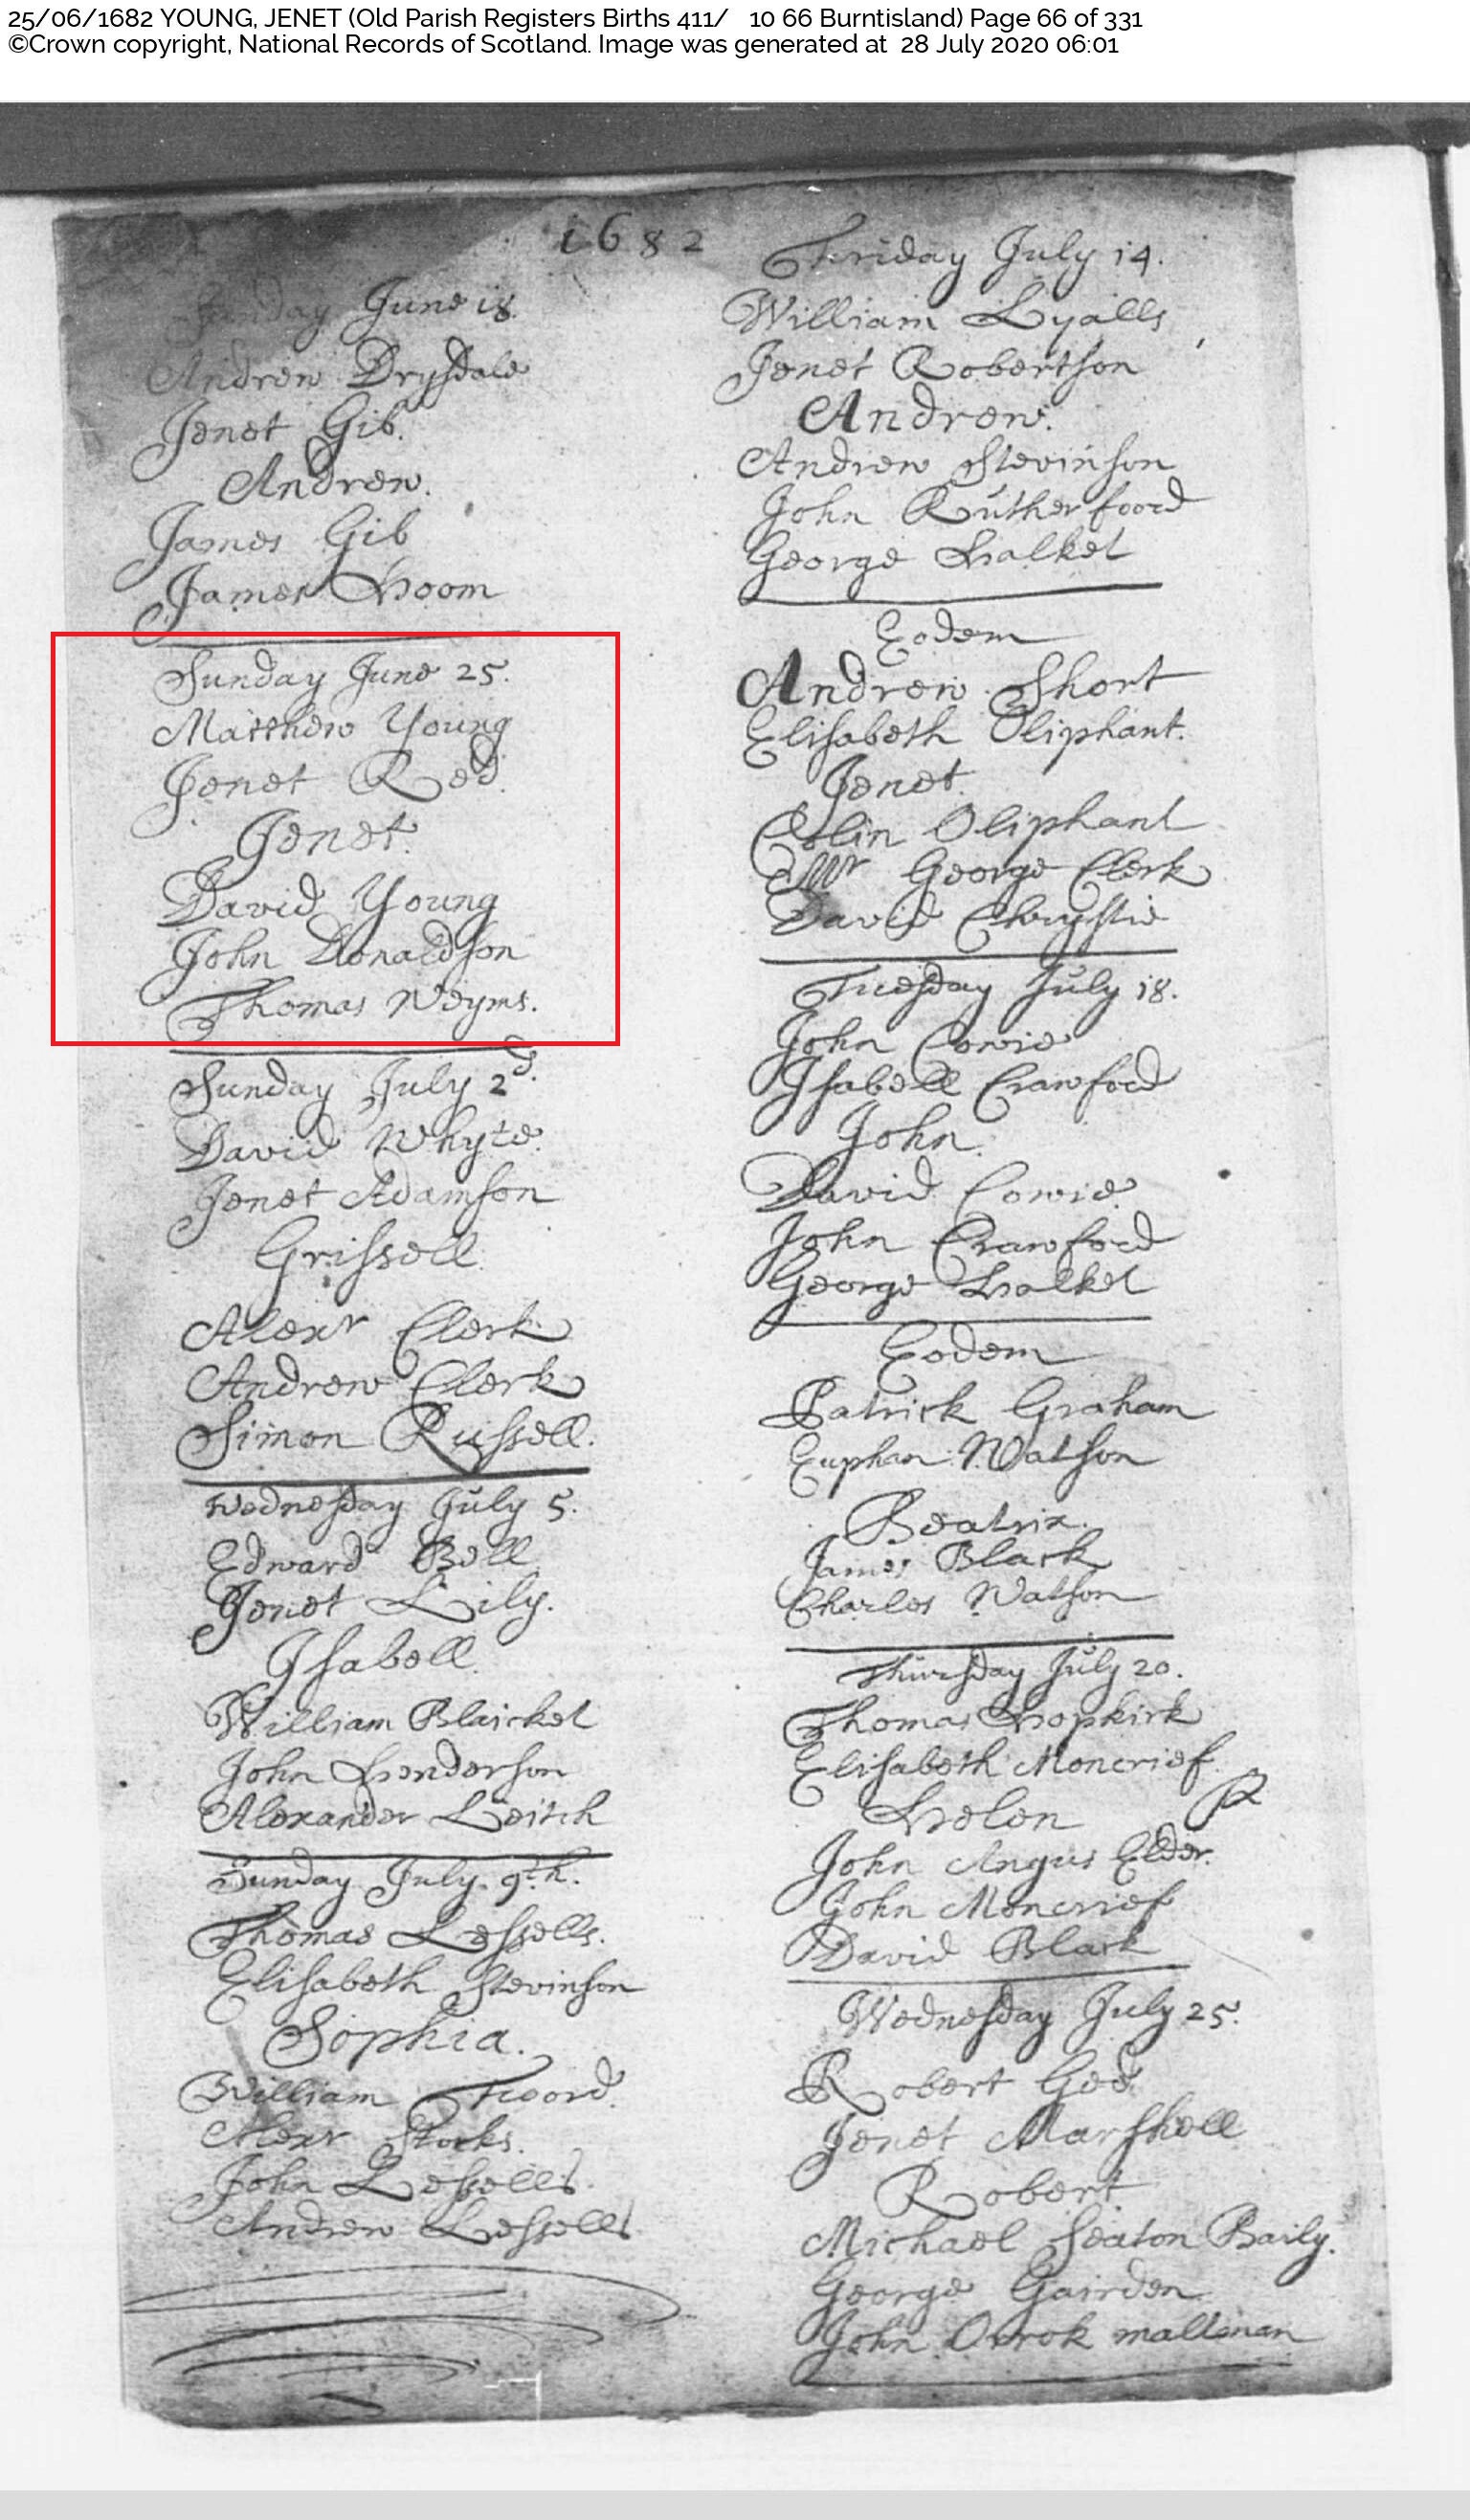 25/06/1682 YOUNG, JENET (Old Parish Registers Births 411/ 10 66 Burntisland) Page 66 of 331
©Crown copyright, National Records of Scotland. Image was generated at 28 July 2020 06:01
1682
Sunday June 18.
Andrew Drysdale
Jenet Gib.
Andrew.
James Gib
James Hoom
Sunday June 25.
Matthew Young
Jenet Red.
Jenet.
David Young
John Donaldson
Thomas Weyms.
Sunday July 2d.
David Whyte.
Jenet Adamson
Grissell
Alexr Clerk
Andrew Clerk
Simon Russell.
Wednesday July 5.
Edward Bell
Jenet Lily.
Isabell.
William Blaicket
John Henderson
Alexander Leitch
Sunday July 9th.
Thomas Lessells.
Elisabeth Stevinson
Sophia.
William
Alexr Stocks.
John Lessells.
Andrew Lessells
Friday July 14.
William Lyalls
Jenet Robertson
Andrew.
Andrew Stevinson
John Rutherfoord
George Halket
Eodem
Andrew Short
Elisabeth Oliphant.
Jenet.
Colin Oliphant
Mr George Clerk
David Chrystie
Tuesday July 18.
John Cowie
Isabell Crawford
John.
David Cowie
John Crawford
George Halket
Eodem
Patrick Graham
Euphan Watson
Beatrix.
James Black
Charles Watson
Thursday July 20.
Thomas Hopkirk
Elisabeth Moncrief.
Helen
John Angus Elder.
John Moncrief
David Black
Wednesday July 25.
Robert Ged
Jenet Marshell
Robert
Michael Seaton Baily.
George Gairden
John Orrok maltman